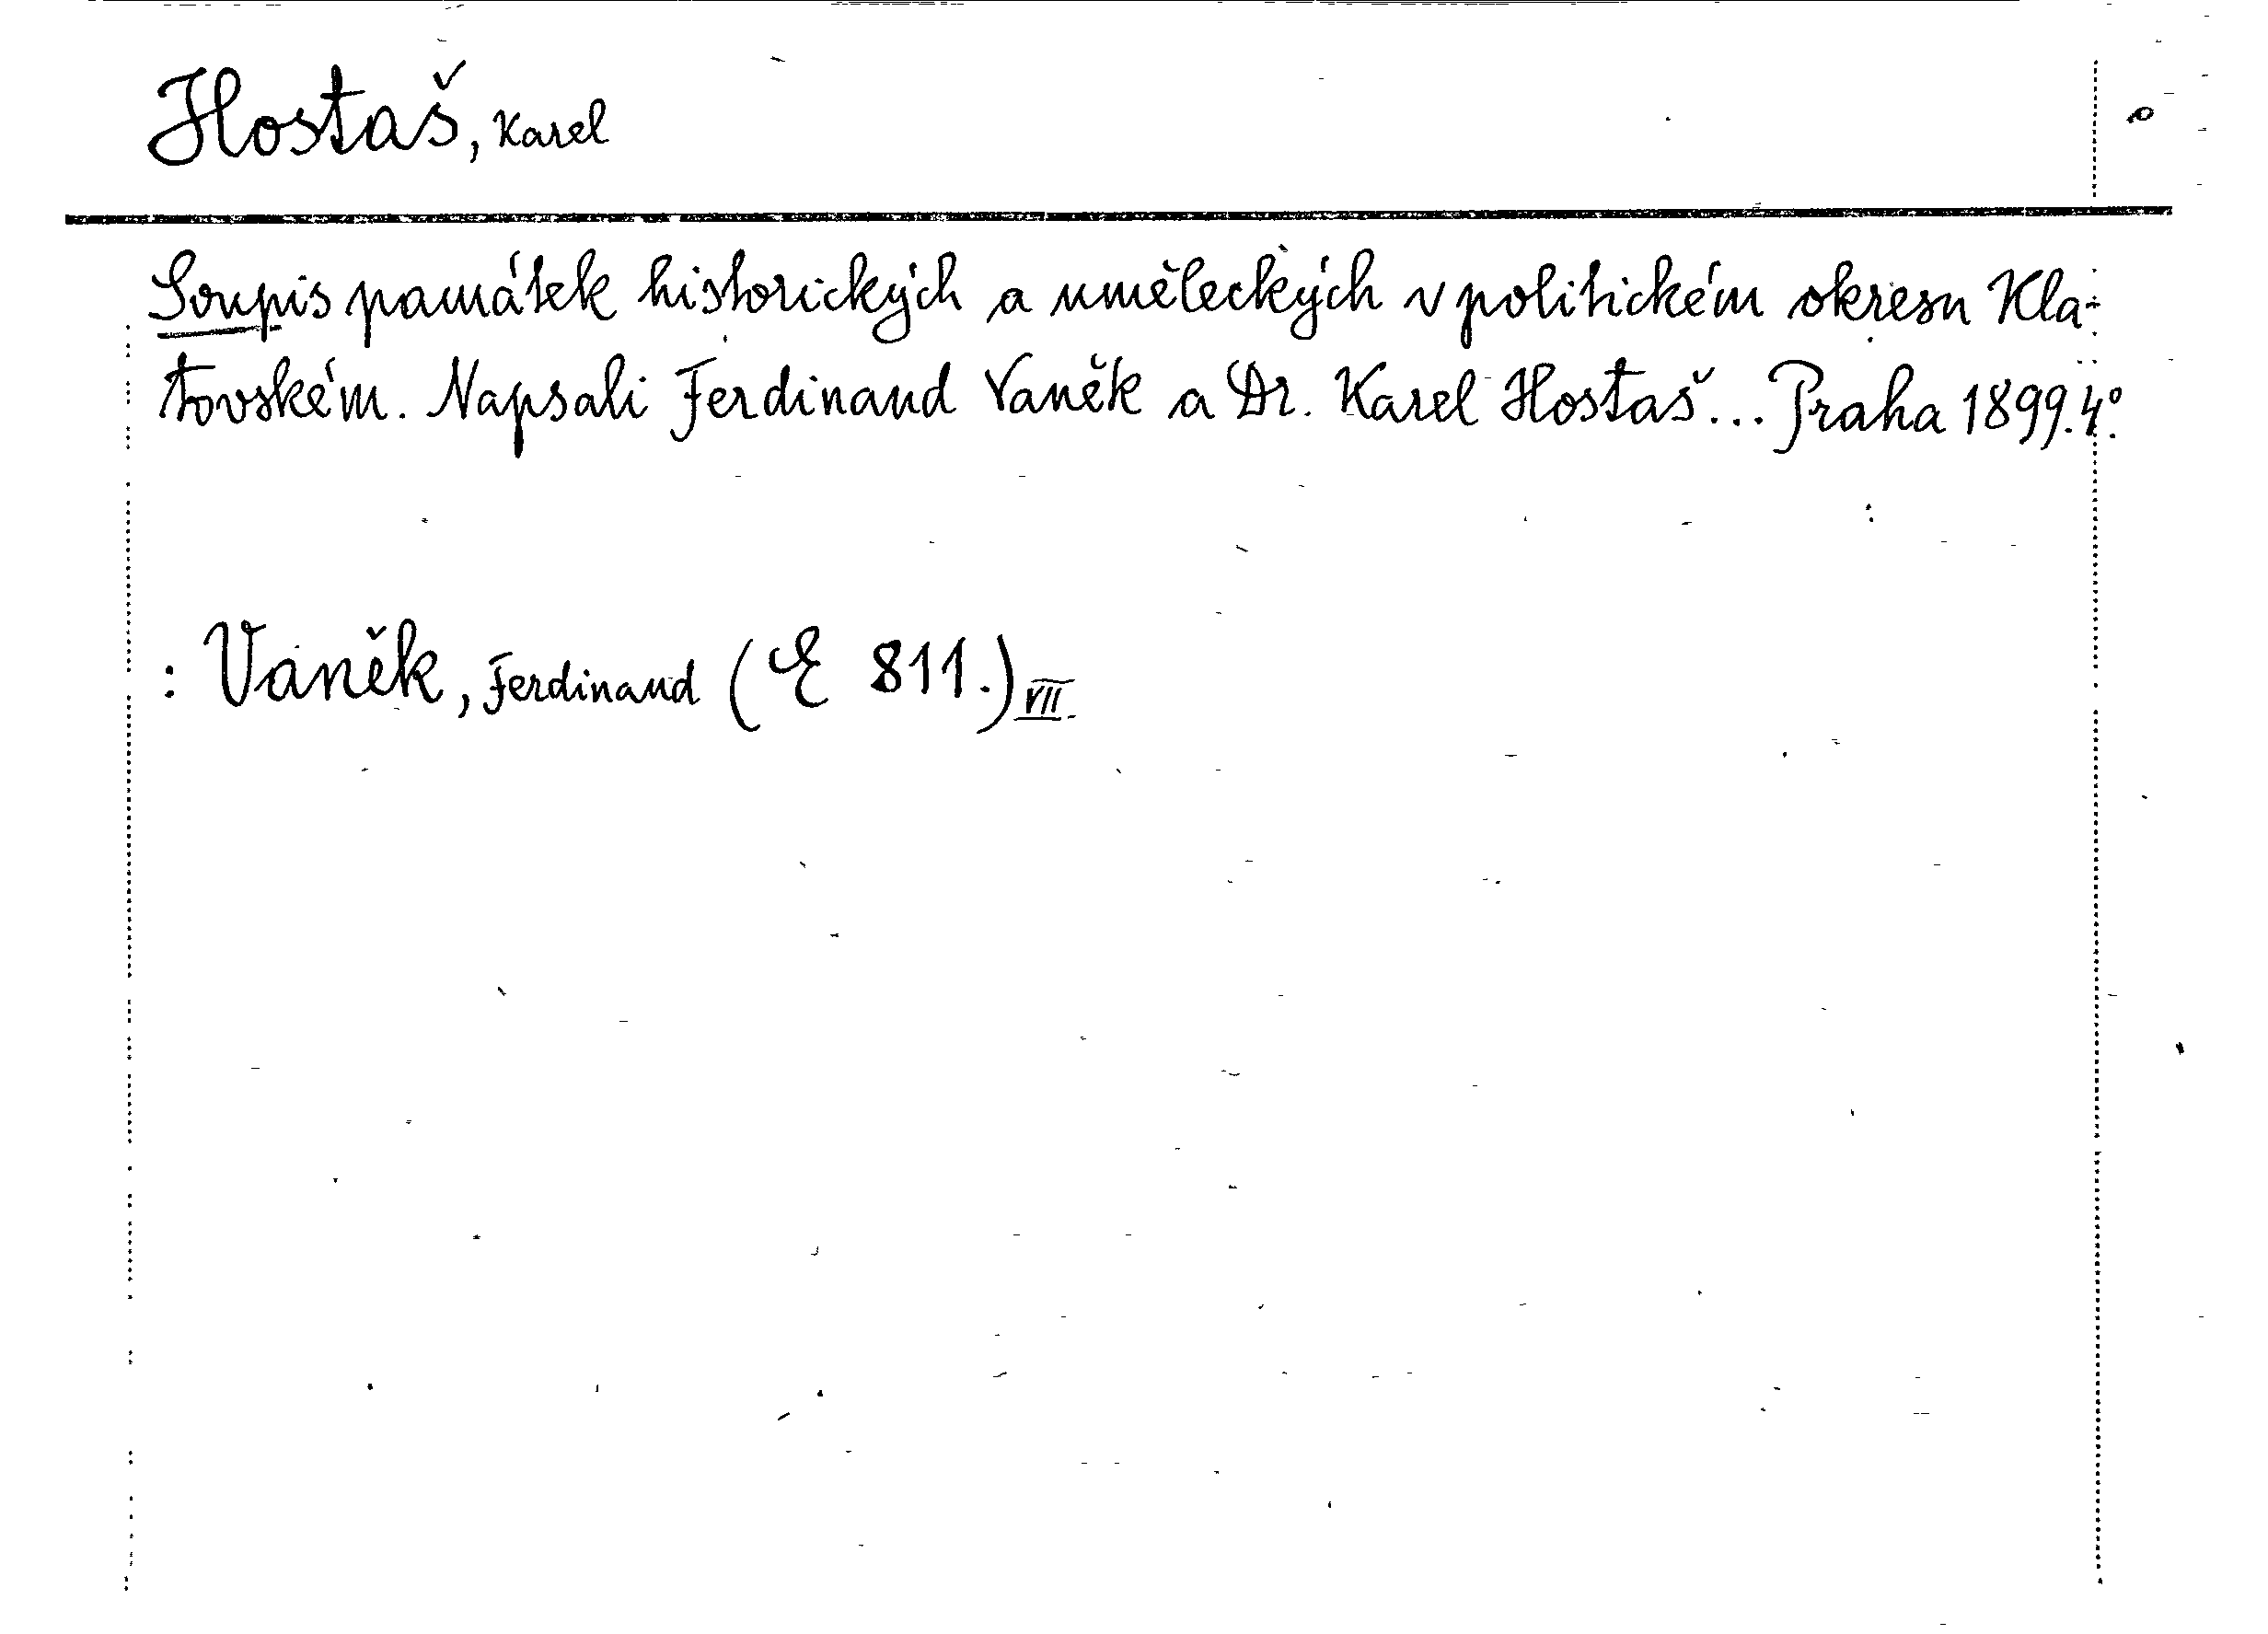 Hostaš, Karel
Soupis památek historických a uměleckých v politickém okresu Kla-
tovském. Napsali Ferdinand Vaněk a Dr. Karel Hostaš... Praha 1899. 4°.
: Vaněk, Ferdinand (E 811.) VII.